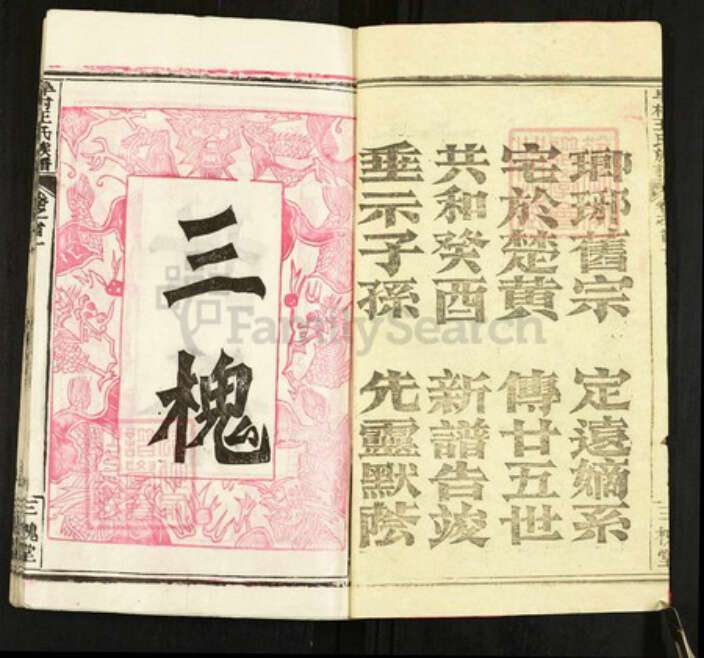 瑯琊舊宗 定遠嫡系
宅於楚黄 傳廿五世
共和癸酉 新譜告竣
垂示子孫 先靈默蔭
三槐堂
三槐
王氏族譜
卷之首
三槐堂
FamilySearch